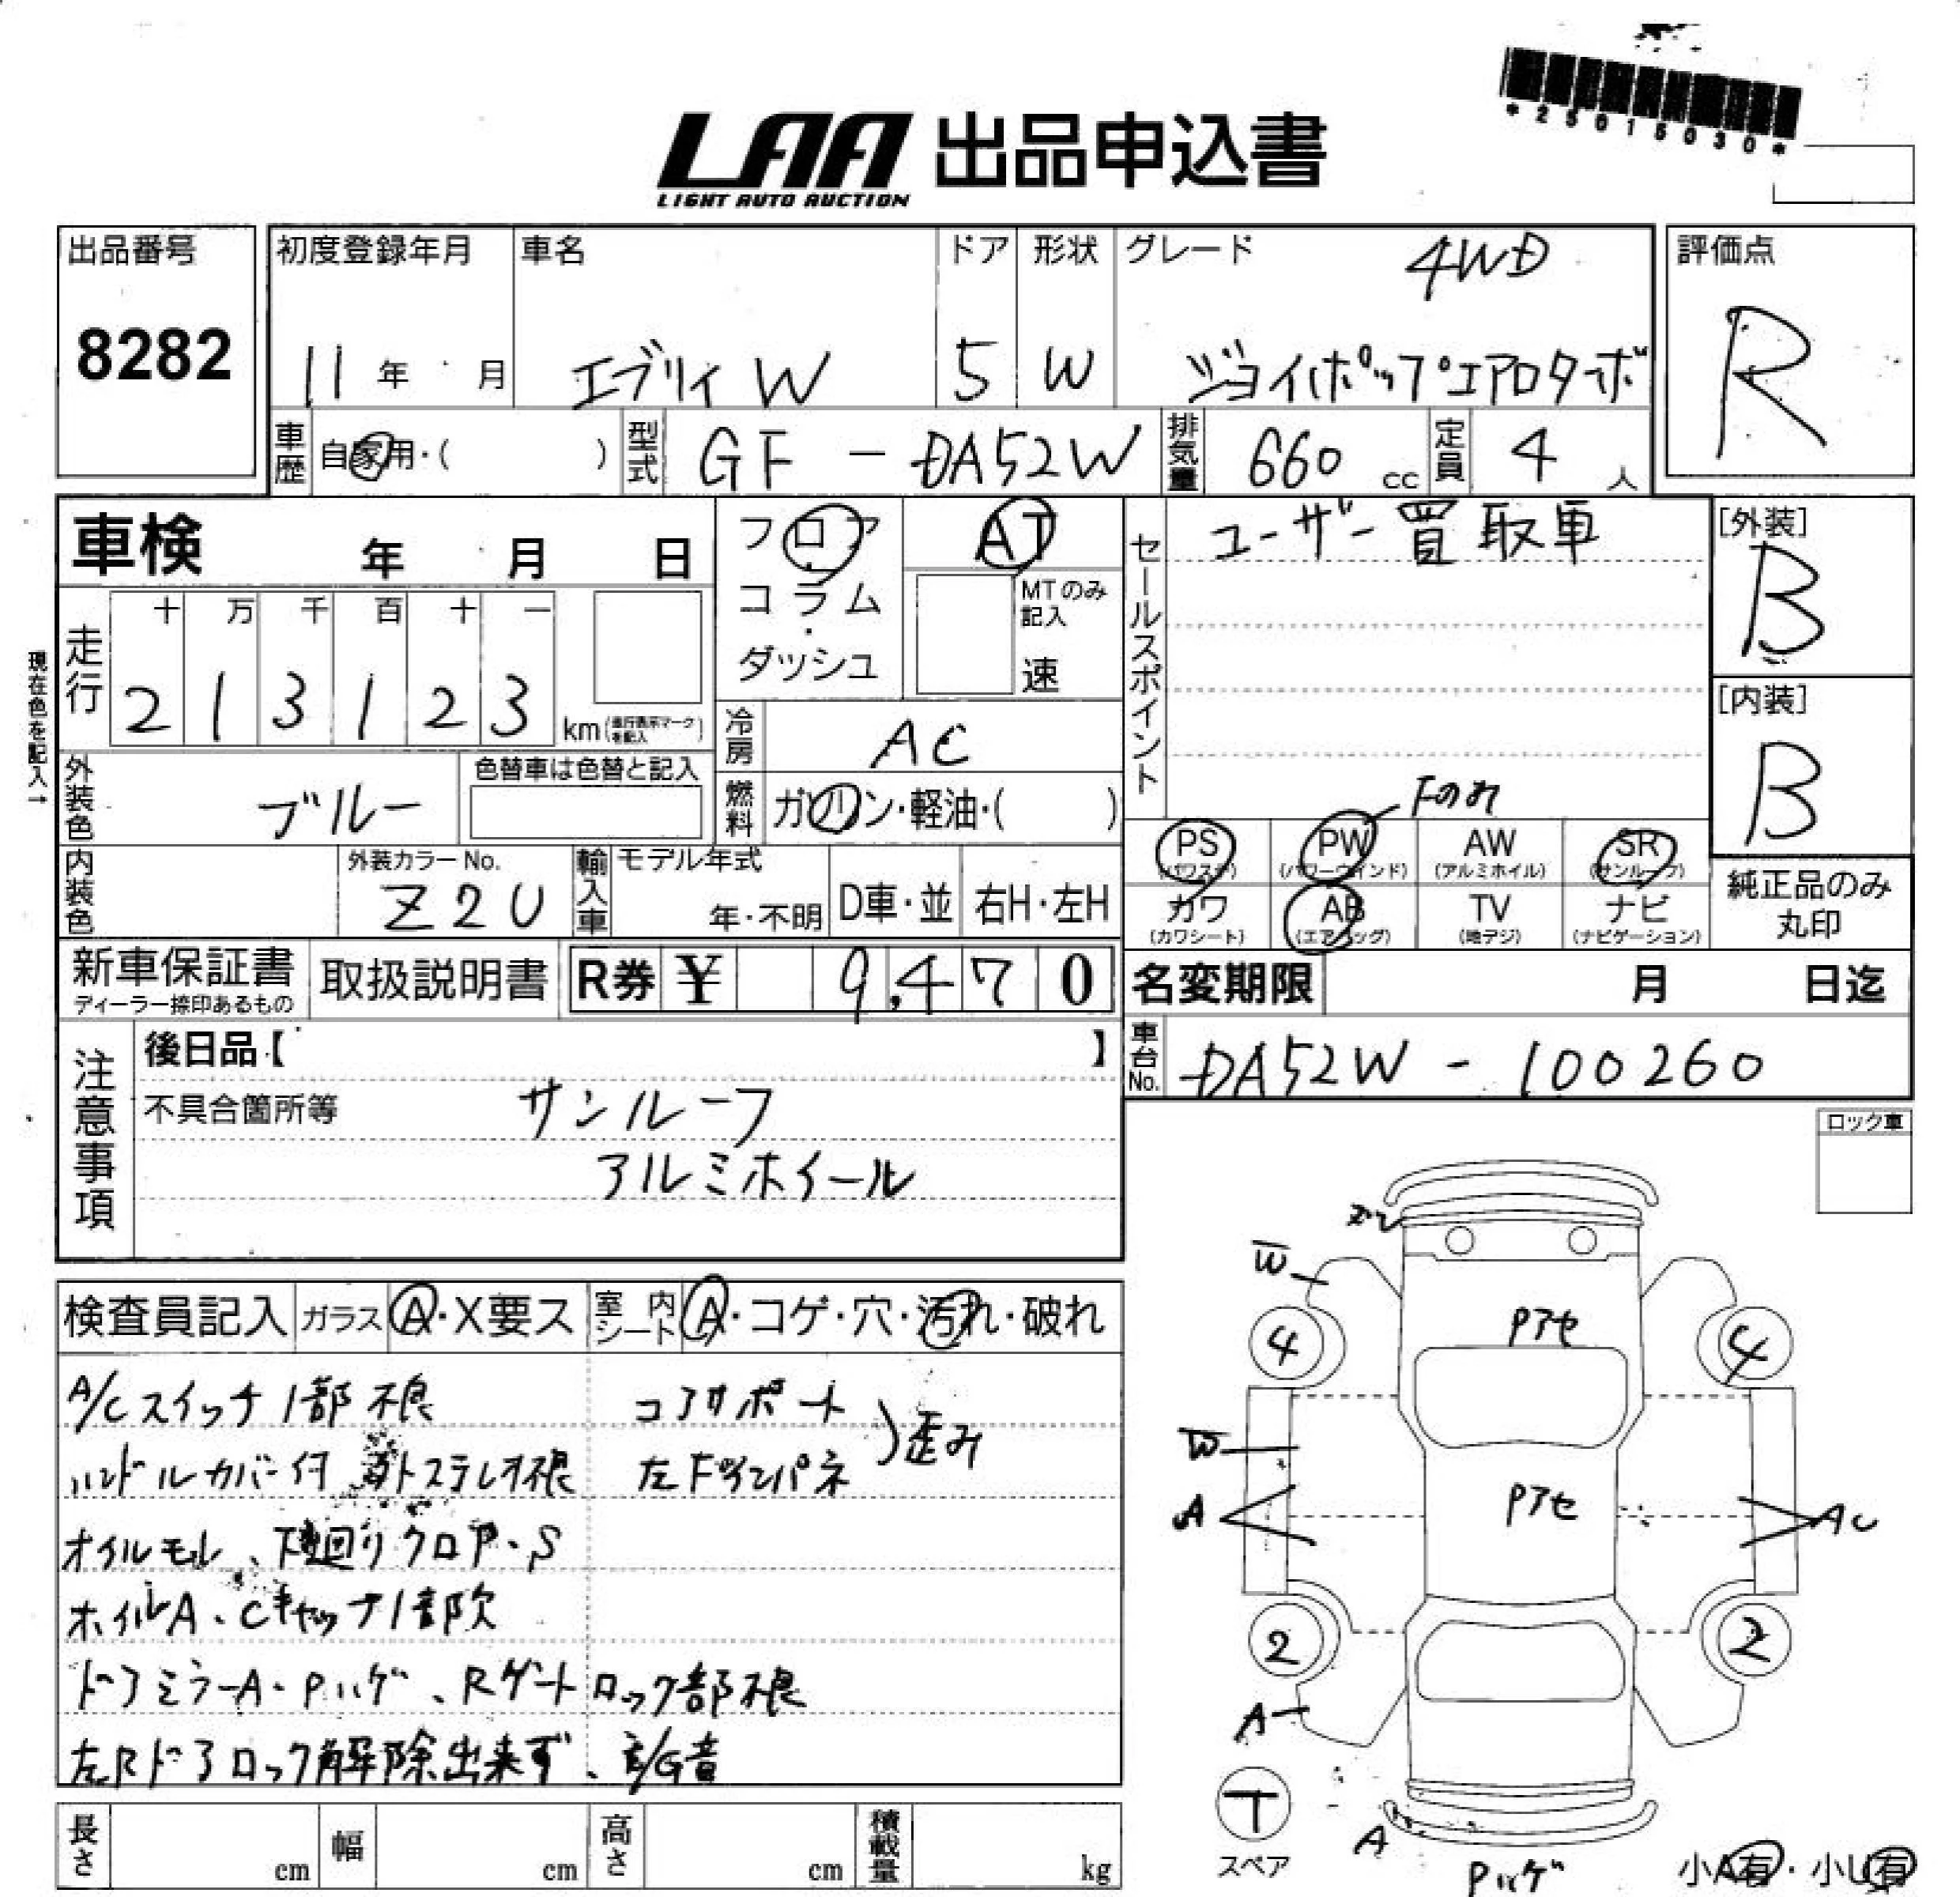 *25015030*
LAA 出品申込書
LIGHT AUTO AUCTION
出品番号
8282
初度登録年月
11年 月
車名
エブリィW
ドア
5
形状
W
グレード
4WD
ジョイポップエアロターボ
評価点
R
車歴
自家用・( )
型式
GF - DA52W
排気量
660 cc
定員
4 人
車検 年 月 日
フロア
コラム
・
ダッシュ
AT
MTのみ
記入
速
セールスポイント
ユーザー買取車
[外装]
B
[内装]
B
現在色を記入→
走行
十 万 千 百 十 一
2 1 3 1 2 3 km(走行表示マークを記入)
冷房
AC
外装色
ブルー
色替車は色替と記入
燃料
ガソリン・軽油・( )
Fのみ
PS
(パワステ)
PW
(パワーウインド)
AW
(アルミホイル)
SR
(サンルーフ)
カワ
(カワシート)
AB
(エアバッグ)
TV
(地デジ)
ナビ
(ナビゲーション)
純正品のみ
丸印
内装色
外装カラーNo.
Z2U
輸入車
モデル年式
年・不明
D車・並
右H・左H
新車保証書
ディーラー捺印あるもの
取扱説明書
R券 ¥ 9,470
名変期限 月 日迄
車台No.
DA52W - 100260
注意事項
後日品【 】
不具合箇所等
サンルーフ
アルミホイール
ロック車
検査員記入
ガラス A・X要ス
室内シート A・コゲ・穴・汚れ・破れ
A/Cスイッチ1部不良
ハンドルカバー付 社外ステレオ不良
オイルモレ、下廻りクロP・S
ホイルA、Cキャップ1部欠
ドアミラーA・Pハゲ、Rゲートロック部不良
左Rドアロック解除出来ず、E/G音
コアサポート
左Fインパネ
歪み
ズレ
W
4
4
Pアセ
W
A
Pアセ
AU
2
2
A
T
スペア
A
Pハゲ
小A有・小U有
長さ cm
幅 cm
高さ cm
積載量 kg